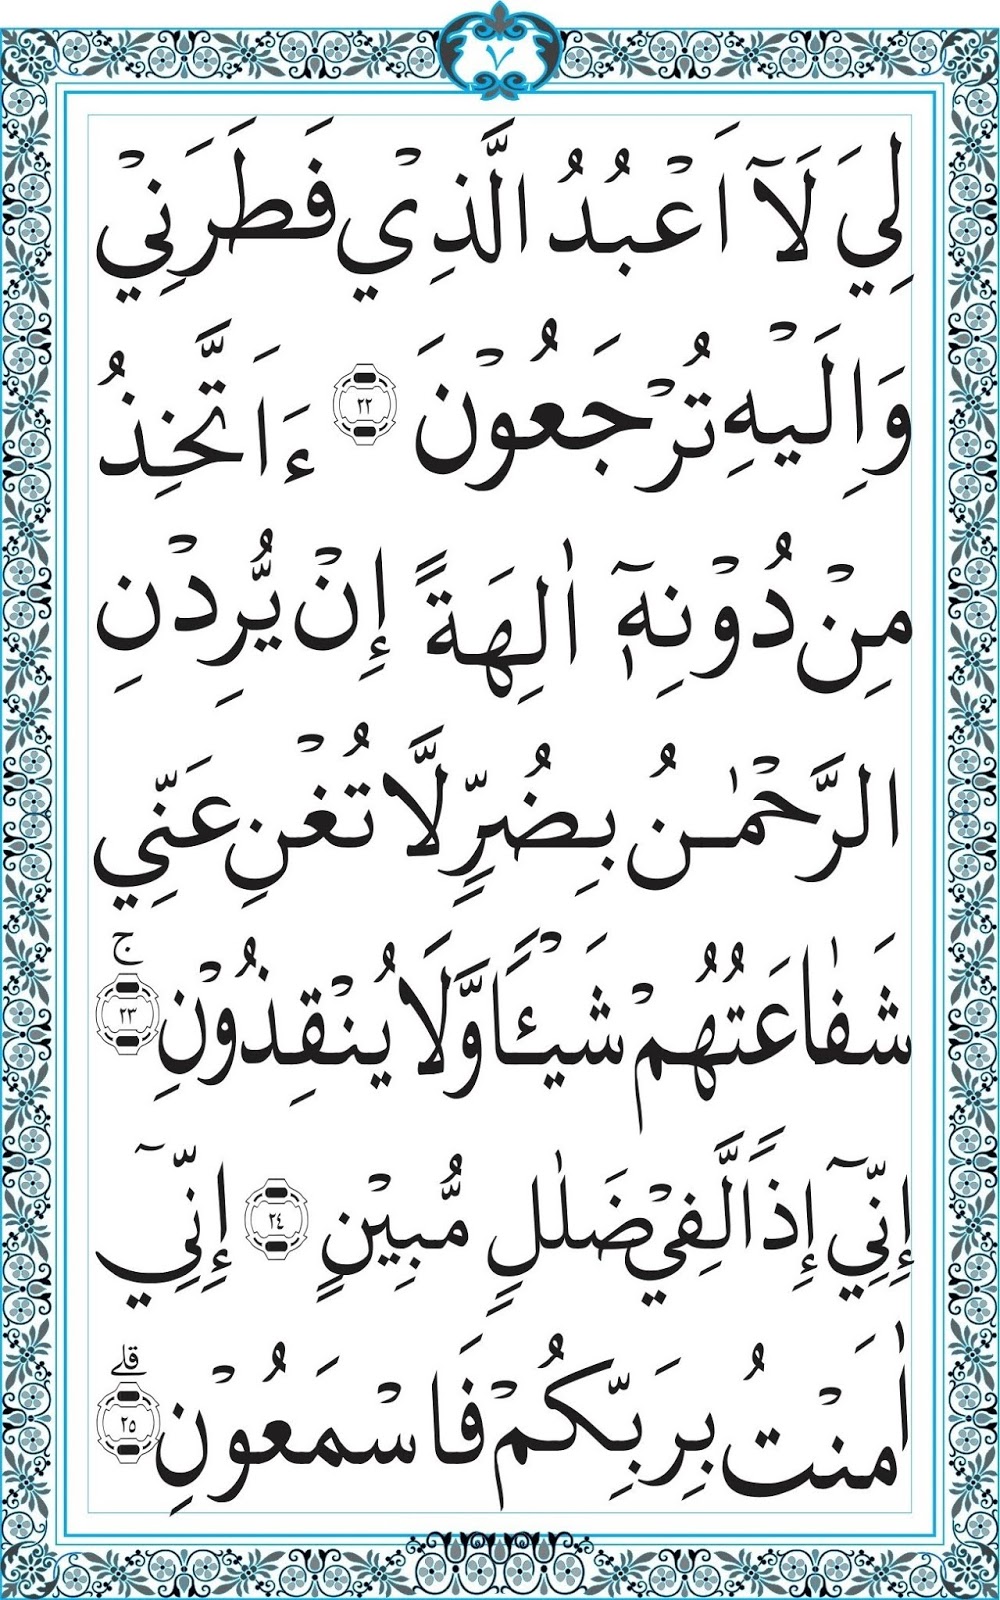 ٧
لِيَ لَآ اَعْبُدُ الَّذِيْ فَطَرَنِيْ
وَاِلَيْهِ تُرْجَعُوْنَ ٢٢ ءَاَتَّخِذُ
مِنْ دُوْنِهٖٓ اٰلِهَةً إِنْ يُّرِدْنِ
الرَّحْمٰنُ بِضُرٍّ لَّا تُغْنِ عَنِّيْ
شَفٰاعَتُهُمْ شَيْـًٔا وَّلَا يُنْقِذُوْنِ ٢٣ ج
إِنِّيْٓ إِذًا لَّفِيْ ضَلٰلٍ مُّبِيْنٍ ٢٤ إِنِّيْٓ
اٰمَنْتُ بِرَبِّكُمْ فَاسْمَعُوْنِ ٢٥ قلے